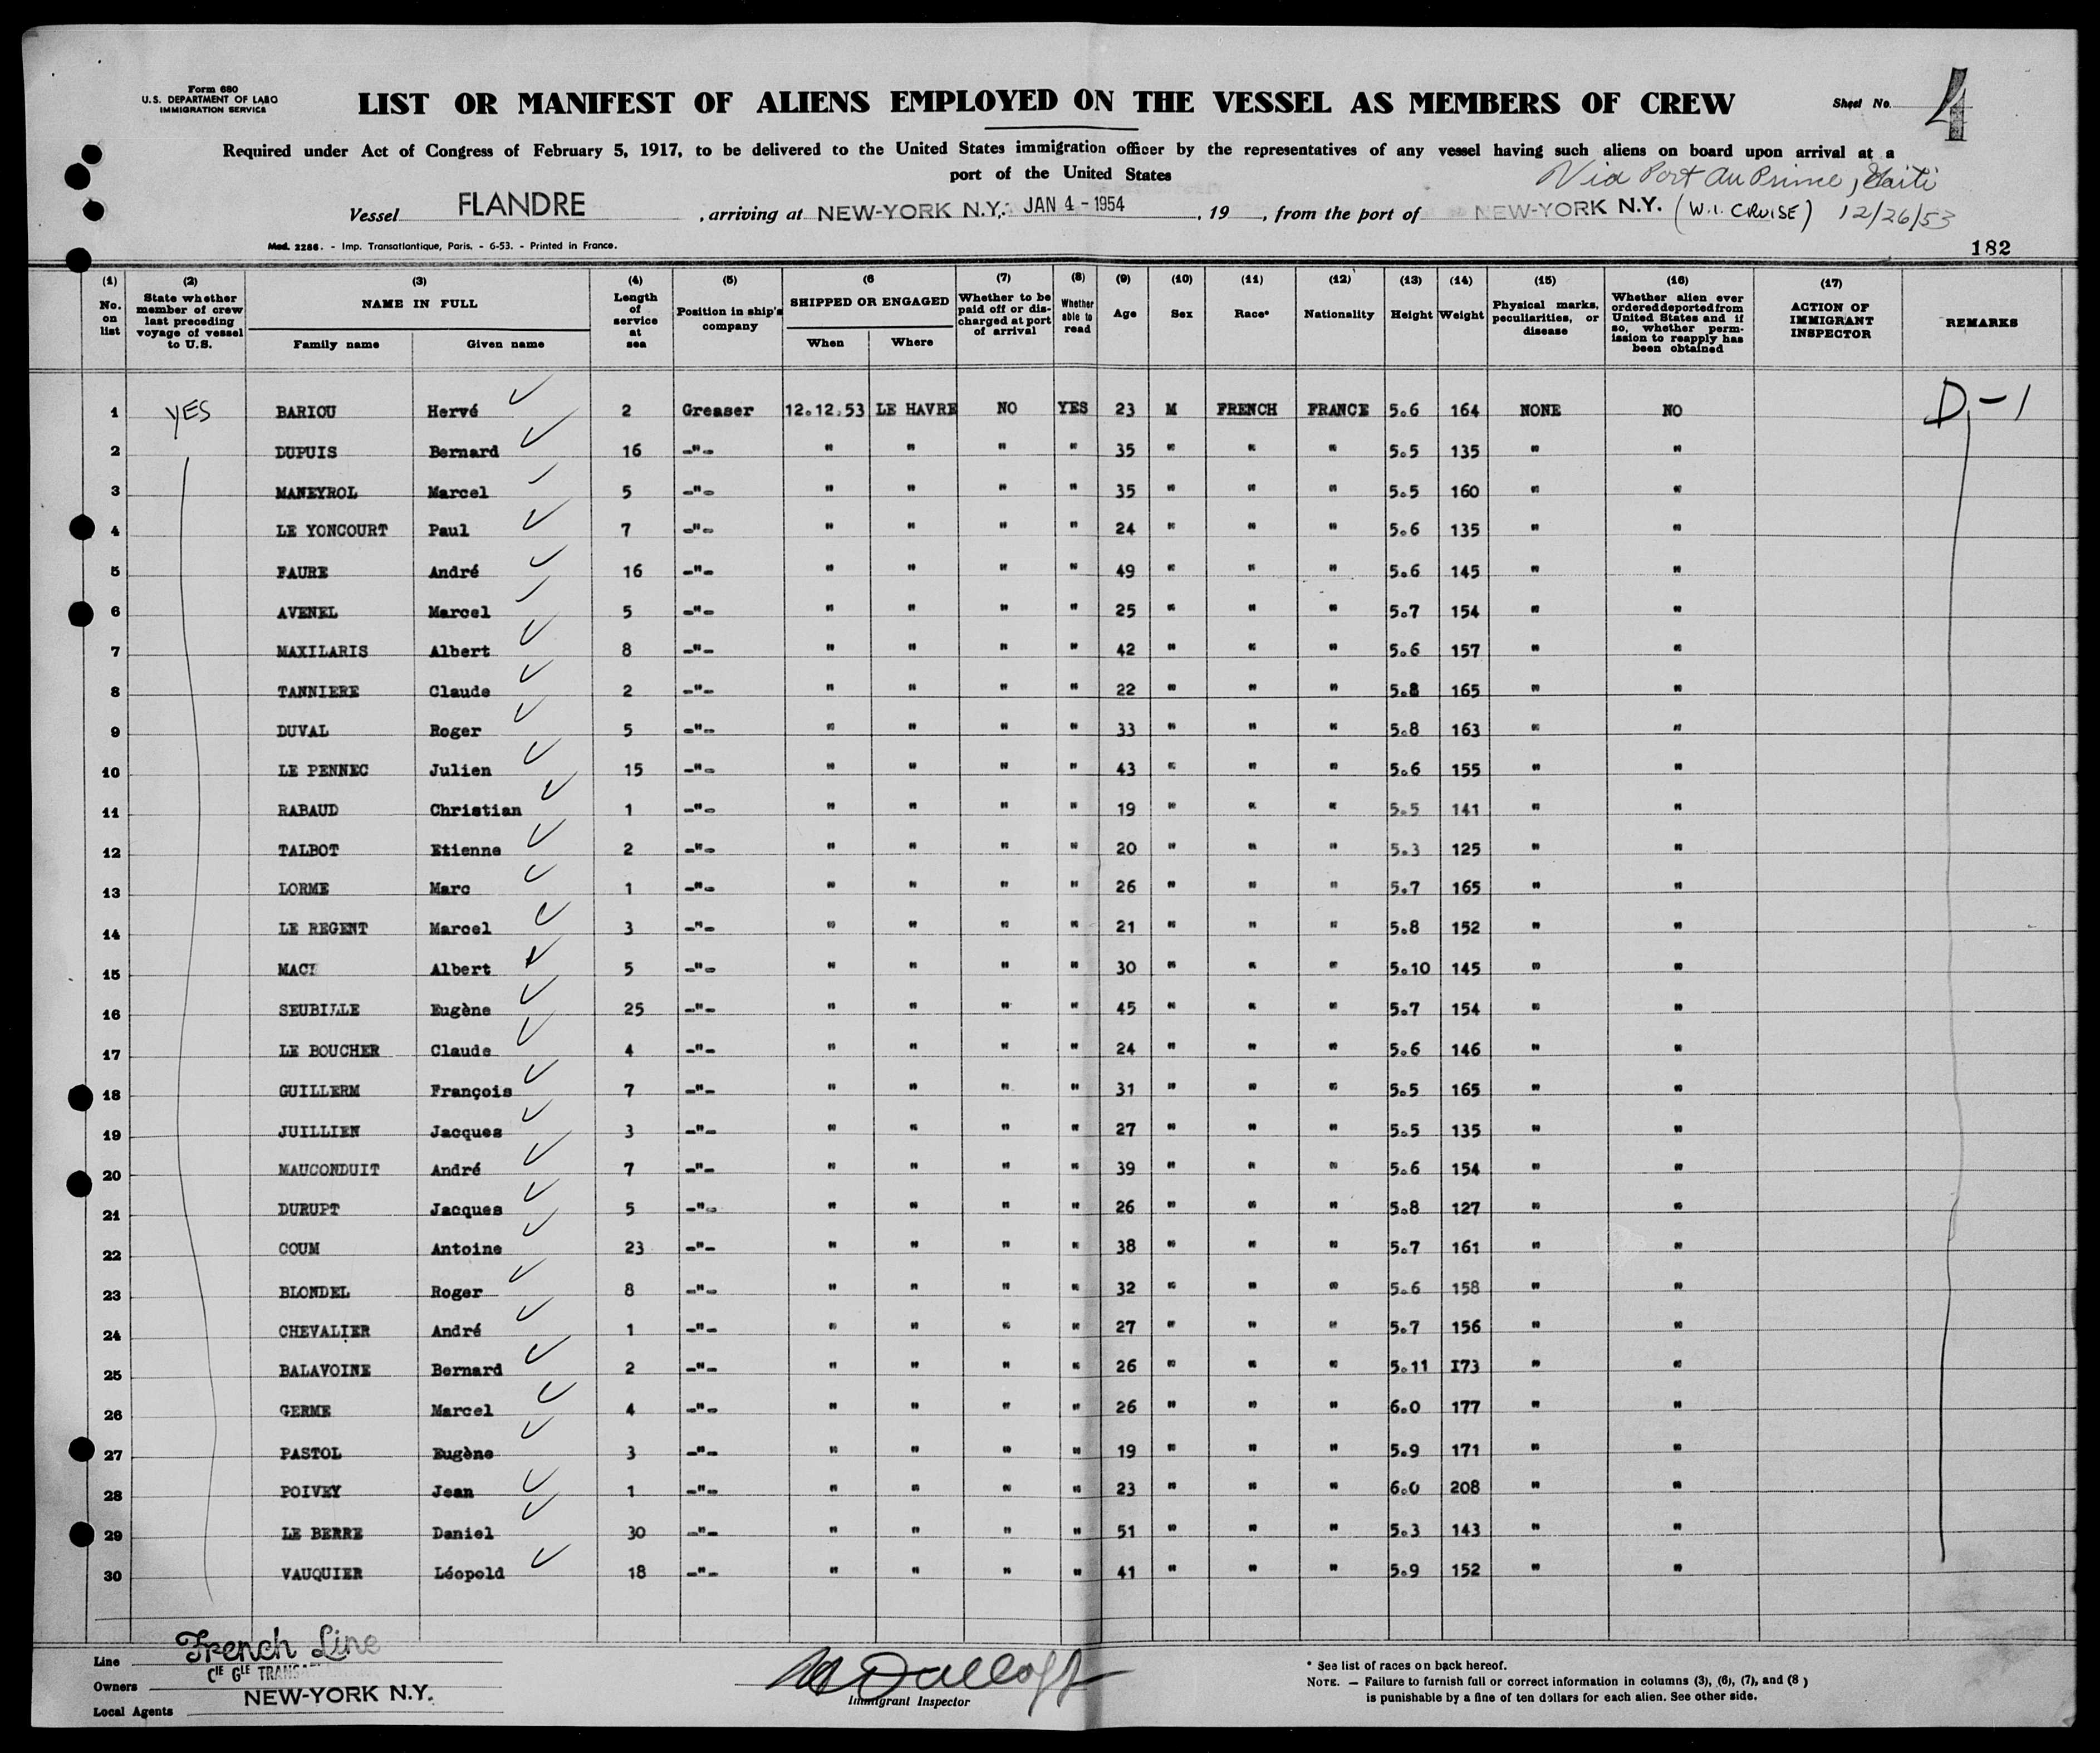 Form 680
U.S. DEPARTMENT OF LABO
IMMIGRATION SERVICE
LIST OR MANIFEST OF ALIENS EMPLOYED ON THE VESSEL AS MEMBERS OF CREW
Sheet No. 4
Required under Act of Congress of February 5, 1917, to be delivered to the United States immigration officer by the representatives of any vessel having such aliens on board upon arrival at a
port of the United States
Via Port Au Prince, Haiti
Vessel FLANDRE, arriving at NEW-YORK N.Y. JAN 4 - 1954, 19, from the port of NEW-YORK N.Y. (W.I. CRUISE) 12/26/53
Mod. 2286. - Imp. Transatlantique, Paris. - 6-53. - Printed in France.
182
(1) No. on list
(2) State whether member of crew last preceding voyage of vessel to U.S.
(3) NAME IN FULL
Family name Given name
(4) Length of service at sea
(5) Position in ship's company
(6 SHIPPED OR ENGAGED
When Where
(7) Whether to be paid off or discharged at port of arrival
(8) Whether able to read
(9) Age
(10) Sex
(11) Race*
(12) Nationality
(13) Height
(14) Weight
(15) Physical marks, peculiarities, or disease
(16) Whether alien ever ordered deported from United States and if so, whether permission to reapply has been obtained
(17) ACTION OF IMMIGRANT INSPECTOR
REMARKS
1 YES BARIOU Hervé 2 Greaser 12.12.53 LE HAVRE NO YES 23 M FRENCH FRANCE 5.6 164 NONE NO D-1
2 DUPUIS Bernard 16 -"- " " " " 35 " " " 5.5 135 " "
3 MANEYROL Marcel 5 -"- " " " " 35 " " " 5.5 160 " "
4 LE YONCOURT Paul 7 -"- " " " " 24 " " " 5.6 135 " "
5 FAURE André 16 -"- " " " " 49 " " " 5.6 145 " "
6 AVENEL Marcel 5 -"- " " " " 25 " " " 5.7 154 " "
7 MAXILARIS Albert 8 -"- " " " " 42 " " " 5.6 157 " "
8 TANNIERE Claude 2 -"- " " " " 22 " " " 5.8 165 " "
9 DUVAL Roger 5 -"- " " " " 33 " " " 5.8 163 " "
10 LE PENNEC Julien 15 -"- " " " " 43 " " " 5.6 155 " "
11 RABAUD Christian 1 -"- " " " " 19 " " " 5.5 141 " "
12 TALBOT Etienne 2 -"- " " " " 20 " " " 5.3 125 " "
13 LORME Marc 1 -"- " " " " 26 " " " 5.7 165 " "
14 LE REGENT Marcel 3 -"- " " " " 21 " " " 5.8 152 " "
15 Albert 5 -"- " " " " 30 " " " 5.10 145 " "
16 SEUBILLE Eugène 25 -"- " " " " 45 " " " 5.7 154 " "
17 LE BOUCHER Claude 4 -"- " " " " 24 " " " 5.6 146 " "
18 GUILLERM François 7 -"- " " " " 31 " " " 5.5 165 " "
19 JUILLIEN Jacques 3 -"- " " " " 27 " " " 5.5 135 " "
20 MAUCONDUIT André 7 -"- " " " " 39 " " " 5.6 154 " "
21 DURUPT Jacques 5 -"- " " " " 26 " " " 5.8 127 " "
22 COUM Antoine 23 -"- " " " " 38 " " " 5.7 161 " "
23 BLONDEL Roger 8 -"- " " " " 32 " " " 5.6 158 " "
24 CHEVALIER André 1 -"- " " " " 27 " " " 5.7 156 " "
25 BALAVOINE Bernard 2 -"- " " " " 26 " " " 5.11 173 " "
26 GERME Marcel 4 -"- " " " " 26 " " " 6.0 177 " "
27 PASTOL Eugène 3 -"- " " " " 19 " " " 5.9 171 " "
28 POIVEY Jean 1 -"- " " " " 23 " " " 6.0 208 " "
29 LE BERRE Daniel 30 -"- " " " " 51 " " " 5.3 143 " "
30 VAUQUIER Léopold 18 -"- " " " " 41 " " " 5.9 152 " "
Line French Line
Owners CIE GLE
Local Agents NEW-YORK N.Y.
Immigrant Inspector
* See list of races on back hereof.
NOTE. — Failure to furnish full or correct information in columns (3), (6), (7), and (8)
is punishable by a fine of ten dollars for each alien. See other side.